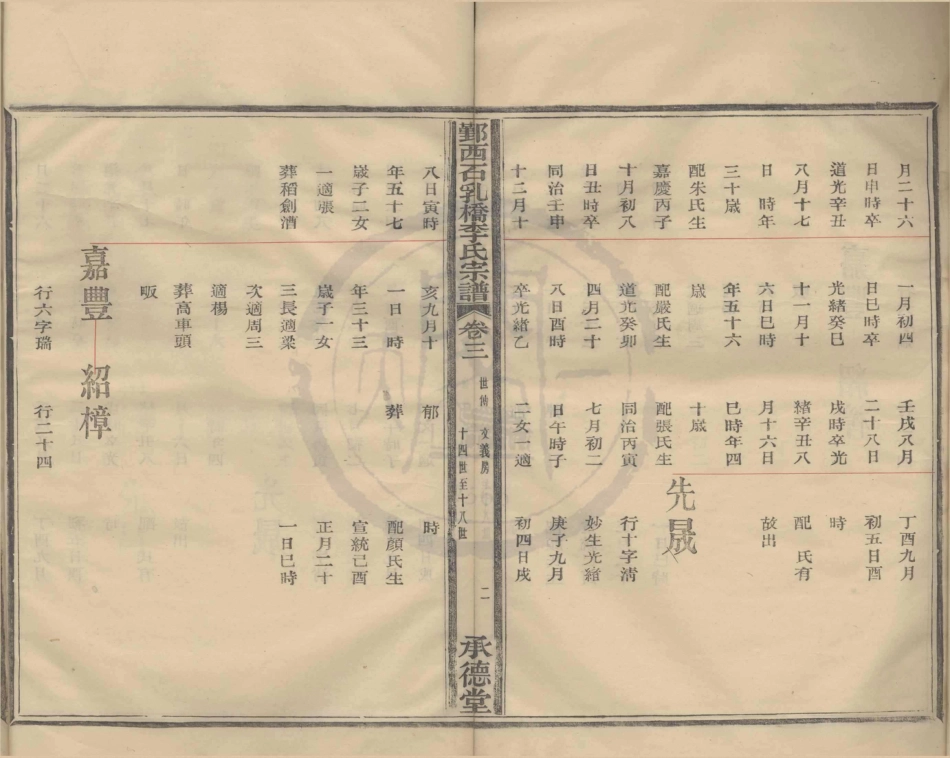 月二十六
日申時卒
道光辛丑
八月十七
日 時年
三十歲
配朱氏生
嘉慶丙子
十月初八
日丑時卒
同治壬申
十二月十
一月初四
日巳時卒
光緒癸巳
十一月十
六日巳時
年五十六
歲
配嚴氏生
道光癸卯
四月二十
八日酉時
卒光緒乙
壬戌八月
二十八日
戌時卒光
緒辛丑八
月十六日
巳時年四
十歲
配張氏生
同治丙寅
七月初二
日午時子
二女一適
丁酉九月
初五日酉
時
配 氏有
故出
先晟
行十字清
妙生光緒
庚子九月
初四日戌
鄞西石乳橋李氏宗譜 卷三
世傳 文義房 十四世至十八世
二
承德堂
八日寅時
年五十七
歲子二女
一適張
葬稻創漕
亥九月十
一日 時
年三十三
歲子一女
三長適梁
次適周三
適楊
葬高車頭
畈
嘉豐
行六字瑞
郁
葬
紹樟
行二十四
時
配顏氏生
宣統己酉
正月二十
一日巳時